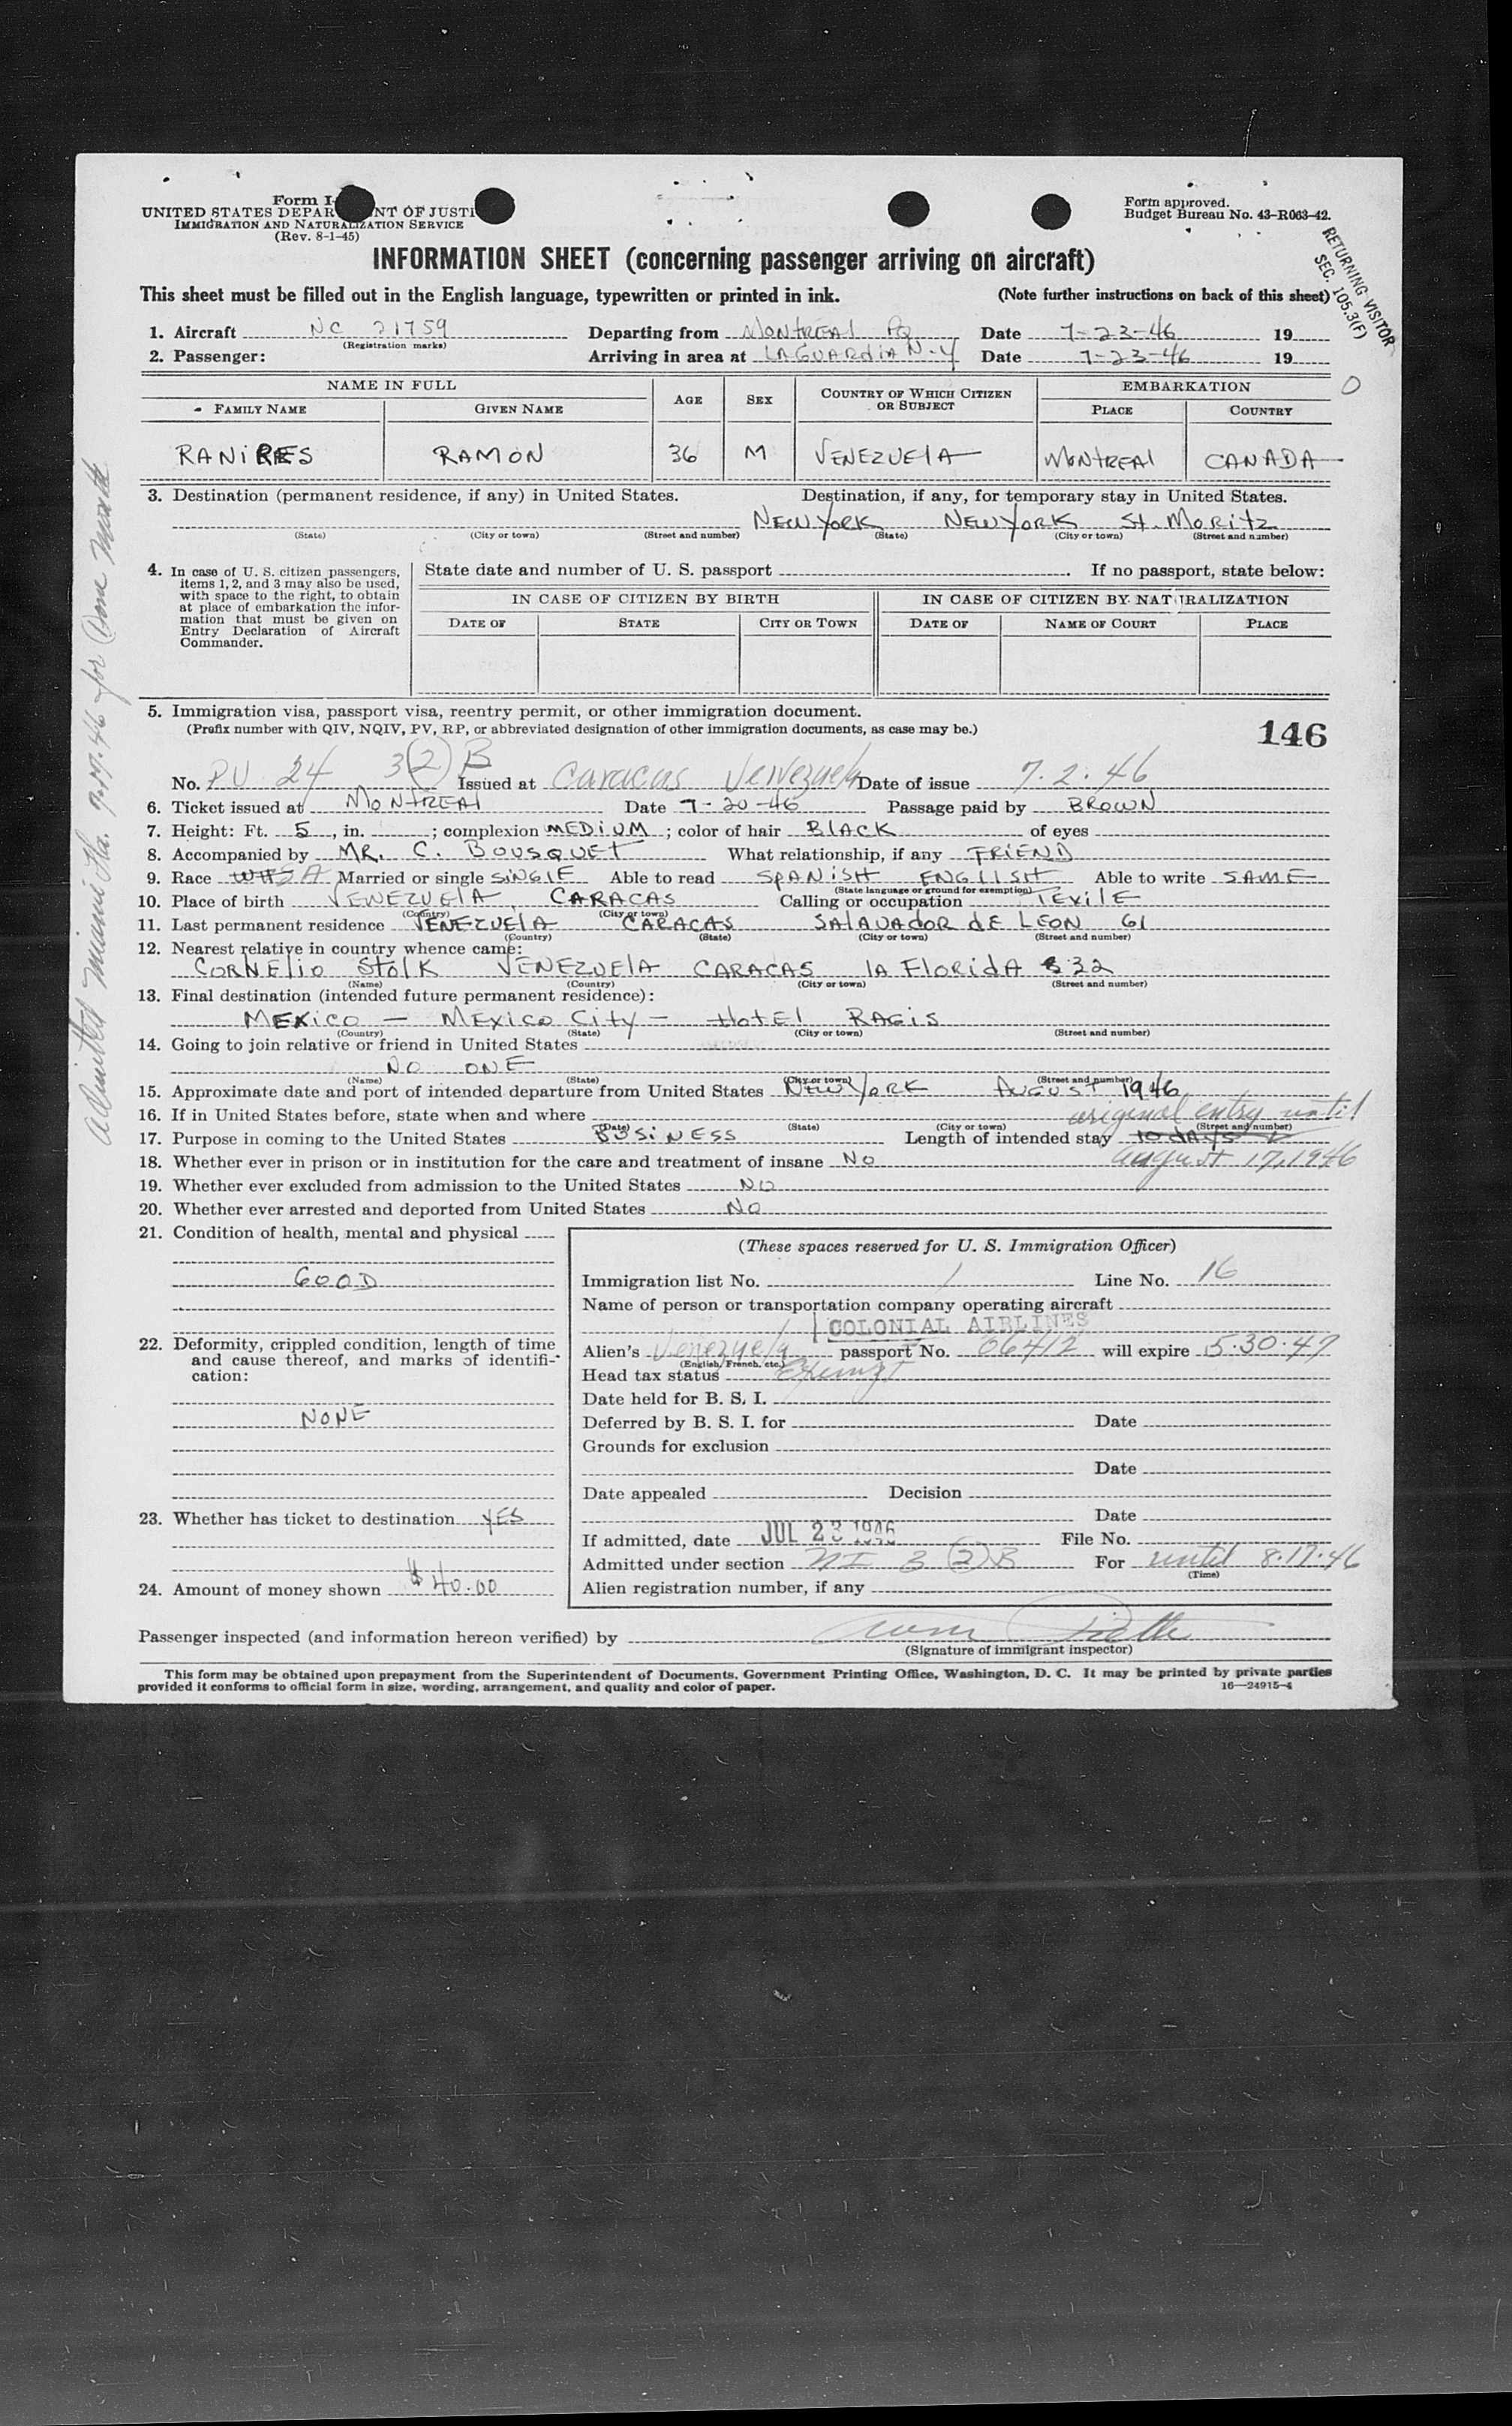 Form I-
UNITED STATES DEPAR NT OF JUSTI
IMMIGRATION AND NATURALIZATION SERVICE
(Rev. 8-1-45)
Form approved.
Budget Bureau No. 43-R063-42.
RETURNING VISITOR
SEC. 105.3(F)
INFORMATION SHEET (concerning passenger arriving on aircraft)
This sheet must be filled out in the English language, typewritten or printed in ink. (Note further instructions on back of this sheet)
1. Aircraft NC 21759 Departing from MONTREAL PQ Date 7-23-46 19
(Registration marks)
2. Passenger: Arriving in area at LAGUARDIA N-Y Date 7-23-46 19
NAME IN FULL AGE SEX COUNTRY OF WHICH CITIZEN OR SUBJECT EMBARKATION
FAMILY NAME GIVEN NAME PLACE COUNTRY
RANIRES RAMON 36 M VENEZUELA MONTREAL CANADA
3. Destination (permanent residence, if any) in United States. Destination, if any, for temporary stay in United States.
NEW YORK NEW YORK St. MORITZ
(State) (City or town) (Street and number) (State) (City or town) (Street and number)
4. In case of U. S. citizen passengers, items 1, 2, and 3 may also be used, with space to the right, to obtain at place of embarkation the information that must be given on Entry Declaration of Aircraft Commander.
State date and number of U. S. passport If no passport, state below:
IN CASE OF CITIZEN BY BIRTH IN CASE OF CITIZEN BY NATURALIZATION
DATE OF STATE CITY OR TOWN DATE OF NAME OF COURT PLACE
5. Immigration visa, passport visa, reentry permit, or other immigration document.
(Prefix number with QIV, NQIV, PV, RP, or abbreviated designation of other immigration documents, as case may be.)
146
No. PV 24 3(2)B Issued at Caracas Venezuela Date of issue 7.2.46
6. Ticket issued at MONTREAL Date 7-20-46 Passage paid by BROWN
7. Height: Ft. 5, in. ; complexion MEDIUM; color of hair BLACK of eyes
8. Accompanied by MR. C. BOUSQUET What relationship, if any FRIEND
9. Race SA Married or single SINGLE Able to read SPANISH ENGLISH Able to write SAME
(State language or ground for exemption)
10. Place of birth VENEZUELA, CARACAS Calling or occupation TEXILE
(Country) (City or town)
11. Last permanent residence VENEZUELA CARACAS SALAVADOR de LEON 61
(Country) (State) (City or town) (Street and number)
12. Nearest relative in country whence came:
CORNELIO STOLK VENEZUELA CARACAS LA FLORIDA 832
(Name) (Country) (City or town) (Street and number)
13. Final destination (intended future permanent residence):
MEXICO - MEXICO CITY - HOTEL RAGIS
(Country) (State) (City or town) (Street and number)
14. Going to join relative or friend in United States
NO ONE
(Name) (State) (City or town) (Street and number)
15. Approximate date and port of intended departure from United States NEW YORK AUGUST 1946
16. If in United States before, state when and where
(Date) (State) (City or town) (Street and number)
original entry until
17. Purpose in coming to the United States BUSINESS Length of intended stay 10 days
August 17, 1946
18. Whether ever in prison or in institution for the care and treatment of insane NO
19. Whether ever excluded from admission to the United States NO
20. Whether ever arrested and deported from United States NO
21. Condition of health, mental and physical
GOOD
22. Deformity, crippled condition, length of time and cause thereof, and marks of identification:
NONE
23. Whether has ticket to destination YES
24. Amount of money shown $40.00
(These spaces reserved for U. S. Immigration Officer)
Immigration list No. 1 Line No. 16
Name of person or transportation company operating aircraft
COLONIAL AIRLINES
Alien's Venezuela passport No. 06412 will expire 5.30.47
(English, French, etc.)
Head tax status Exempt
Date held for B. S. I.
Deferred by B. S. I. for Date
Grounds for exclusion
Date
Date appealed Decision
Date
If admitted, date JUL 23 1946 File No.
Admitted under section NI 3(2)B For until 8.17.46
(Time)
Alien registration number, if any
Passenger inspected (and information hereon verified) by
(Signature of immigrant inspector)
This form may be obtained upon prepayment from the Superintendent of Documents, Government Printing Office, Washington, D. C. It may be printed by private parties
provided it conforms to official form in size, wording, arrangement, and quality and color of paper. 16—24915-4
Admitted Miami Fla. 7.17.46 for One Month